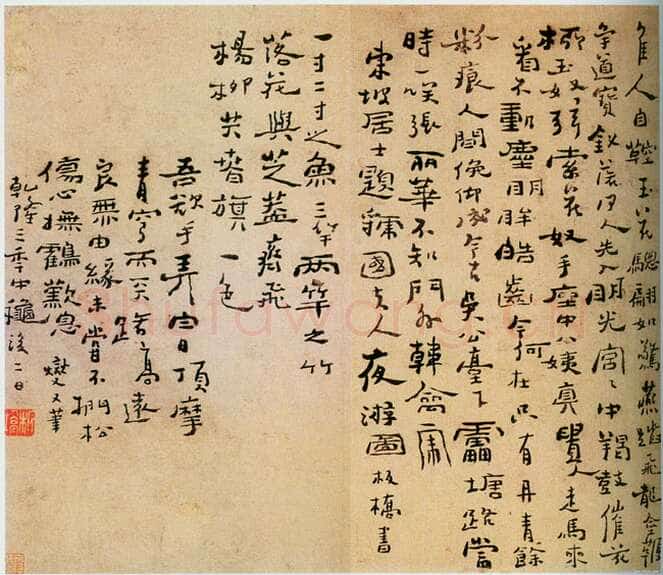 佳人自鞚玉花驄翩如驚燕踏飛龍金鞭
爭道寶釵落何人先入明光宮宮中羯鼓催花
柳玉奴弦索花奴手座中八姨真貴人走馬來
看不動塵明眸皓齒今何在只有丹青餘
粉痕人間俛仰成今古吳公臺下雷塘路當
時一笑張麗華不知門外韓禽虎
東坡居士題虢國夫人夜游圖 板橋書
一寸二寸之魚三竿兩竿之竹
落花與芝蓋齊飛
楊柳共春旗一色
吾欲手弄白日頂摩
青穹而天路高遠
良無由緣未嘗不捫松
傷心撫鶴歎息 燮又筆
乾隆三季中秋後二日